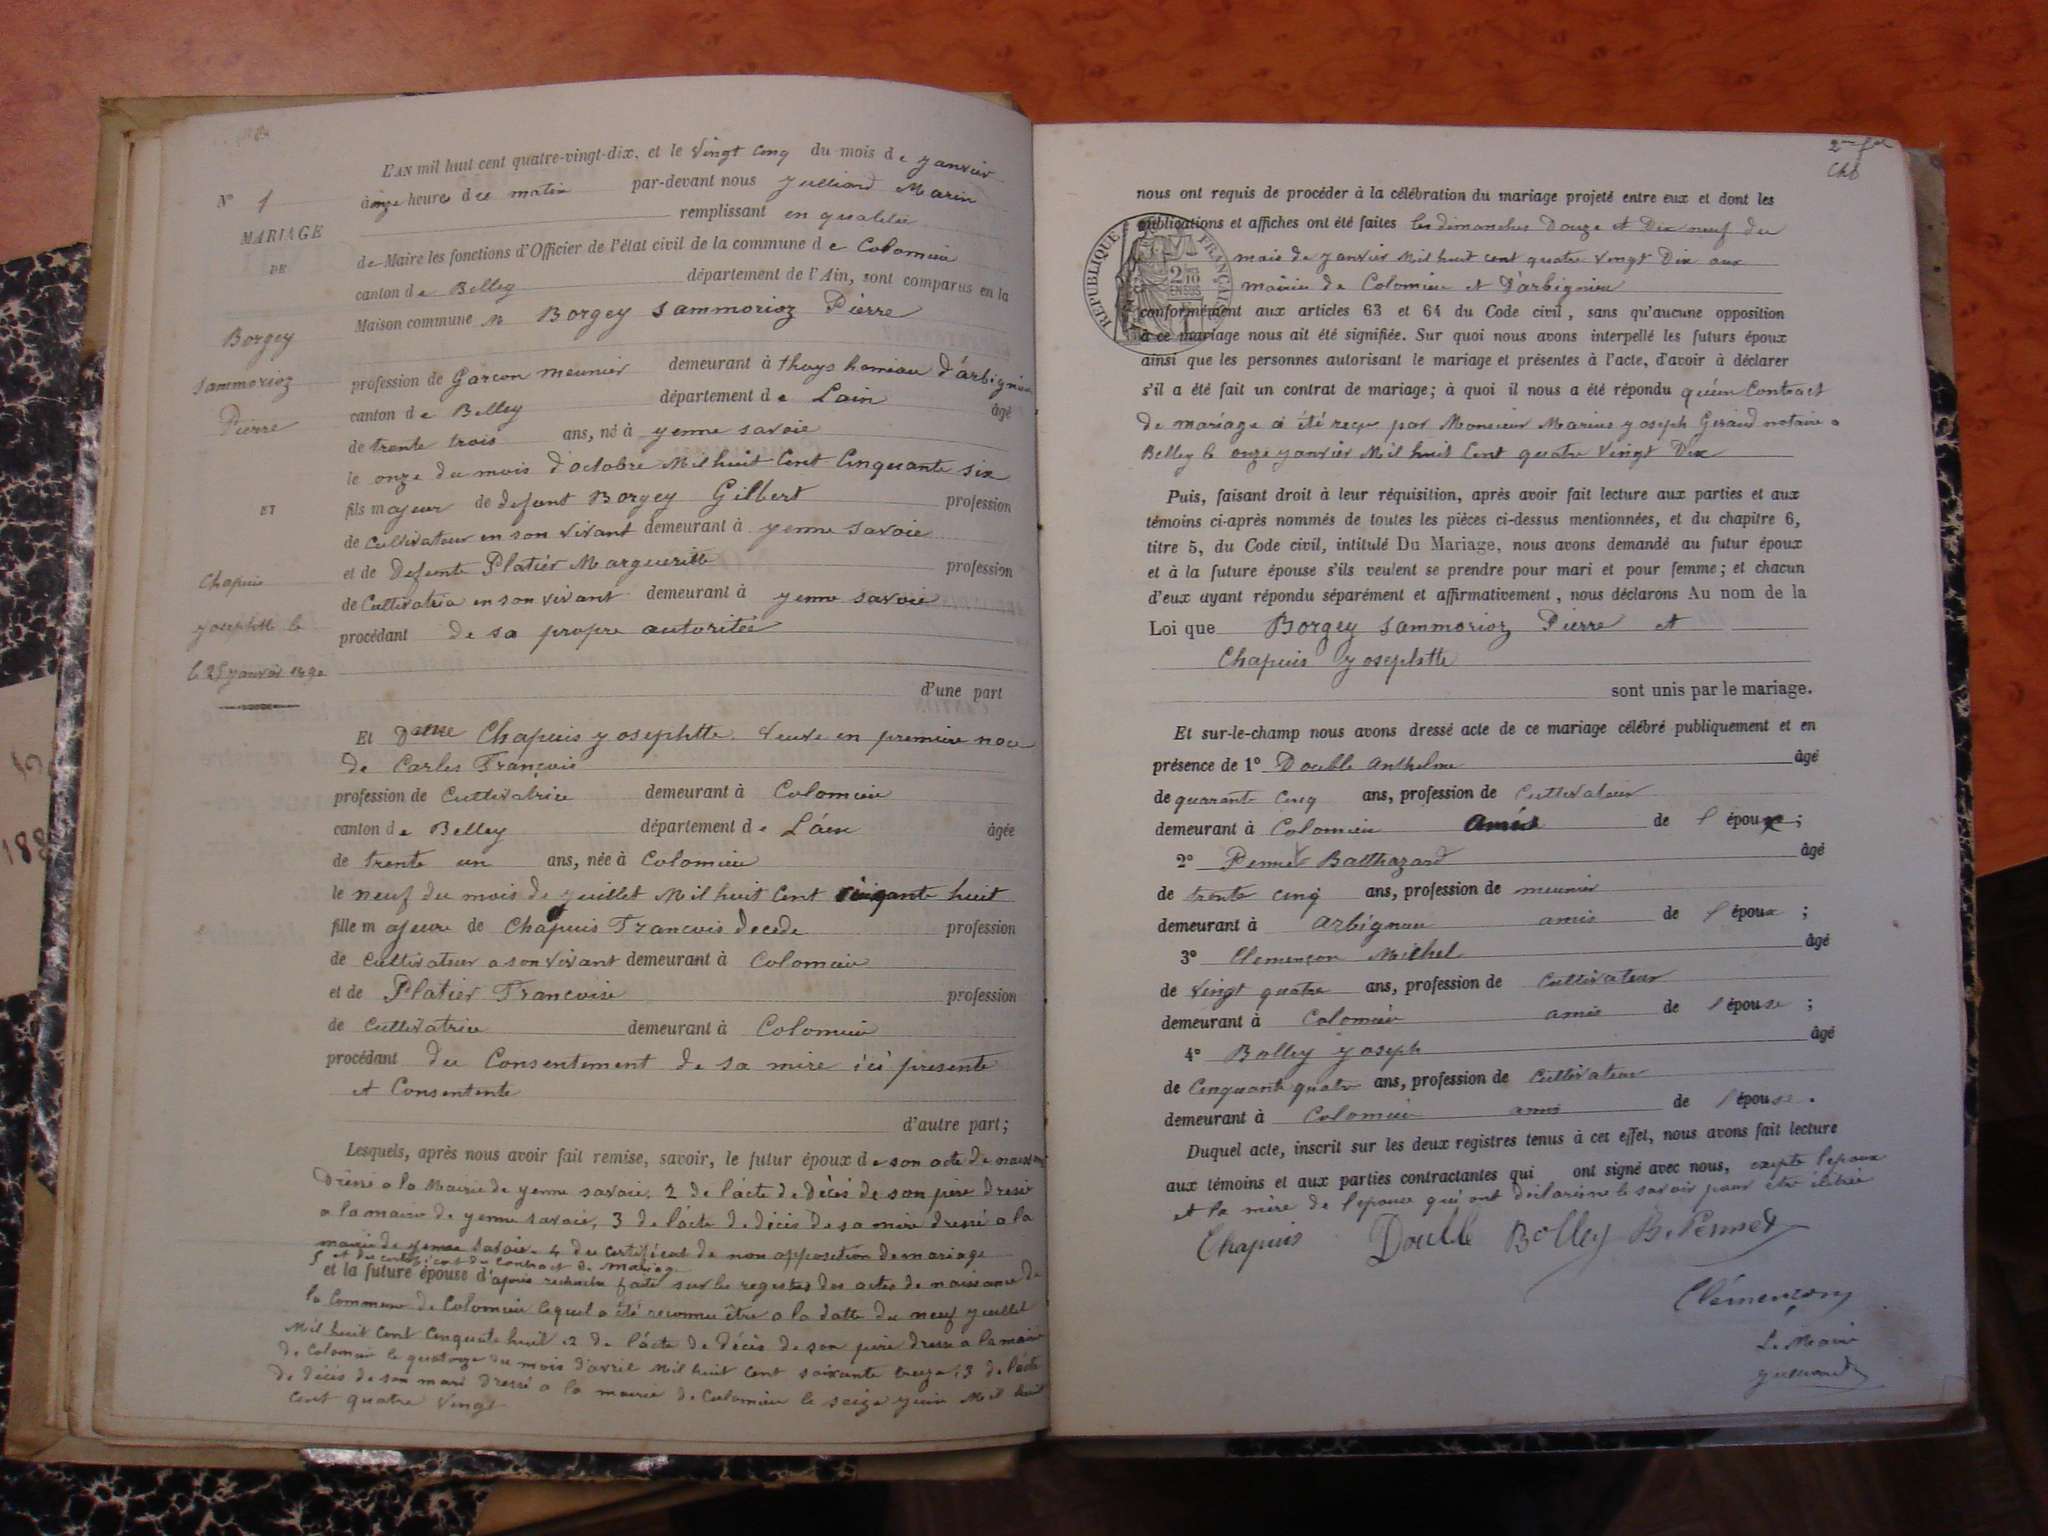 L'AN mil huit cent quatre-vingt-dix, et le Vingt Cinq du mois de yanvier
N° 1
à onze heures du matin par-devant nous Julliand Marin
remplissant en qualitée
MARIAGE
DE
de Maire les fonctions d'Officier de l'état civil de la commune de Colomieu
canton de Belley département de l'Ain, sont comparus en la
Maison commune Borgey Sammorioz Pierre
Borgey
Sammorioz
Pierre
profession de Garcon meunier demeurant à thuys hameau d'arbignieu
canton de Belley département de Lain âgé
de trente trois ans, né à yenne savoie
le onze du mois d'octobre Mil huit Cent Cinquante six
ET
fils majeur de defunt Borgey Gilbert profession
de Cultivateur en son vivant demeurant à yenne savoie
et de Defunte Platier Margueritte profession
de Cultivatrice en son vivant demeurant à yenne savoie
procédant de sa propre autoritée
Chapuis
yosephtte le
le 25 yanvier 1890
d'une part
Et Dame Chapuis yosephtte Veuve en premiere noce
de Carles François
profession de Cultivatrice demeurant à Colomieu
canton de Belley département de L'áin âgée
de trente un ans, née à Colomieu
le neuf du mois de yuillet Mil huit Cent Cinqante huit
fille majeure de Chapuis Francois Decede profession
de Cultivateur a son vivant demeurant à Colomieu
et de Platier Francoise profession
de Cultivatrice demeurant à Colomieu
procédant du Consentement de sa mère ici présente
et Consentente
d'autre part;
Lesquels, après nous avoir fait remise, savoir, le futur époux de son acte de naissance
Dréssé a la Mairie de yenne savoie, 2 de l'acte de Décés de son père dressé
a la mairie de yenne savoie, 3 de l'acte de décés de sa mère dressé a la
mairie de yenne savoie. 4 du certificat de non opposition de mariage
5 et du certificat du contract de mariage
et la future épouse d'aprés recherche faite sur les registres des actes de naissance de
la Commune de Colomieu lequel a été reconnu être a la datte du neuf yuillet
Mil huit Cent Cinquate huit. 2 de l'acte de décés de son père dressé a la mairie
de Colomieu le quatorze du mois d'avril Mil huit Cent soixante treize, 3 de l'acte
de décés de son mari dressé a la mairie de Colomieu le seize yuin Mil huit
Cent quatre Vingt
2me fel
Chb
nous ont requis de procéder à la célébration du mariage projeté entre eux et dont les
publications et affiches ont été faites les dimanches Douze et Dix neuf du
mois de yanvier Mil huit cent quatre Vingt Dix aux
mairie de Colomieu et D'arbignieu
RÉPUBLIQUE FRANÇAISE
2 10
EN SUS
conformément aux articles 63 et 64 du Code civil, sans qu'aucune opposition
à ce mariage nous ait été signifiée. Sur quoi nous avons interpellé les futurs époux
ainsi que les personnes autorisant le mariage et présentes à l'acte, d'avoir à déclarer
s'il a été fait un contrat de mariage; à quoi il nous a été répondu qu'un Contract
de mariage a été reçu par Monsieur Marius yoseph Giraud notaire a
Belley le onze yanvier Mil huit Cent quatre Vingt Dix
Puis, faisant droit à leur réquisition, après avoir fait lecture aux parties et aux
témoins ci-après nommés de toutes les pièces ci-dessus mentionnées, et du chapitre 6,
titre 5, du Code civil, intitulé Du Mariage, nous avons demandé au futur époux
et à la future épouse s'ils veulent se prendre pour mari et pour femme; et chacun
d'eux ayant répondu séparément et affirmativement, nous déclarons Au nom de la
Loi que Borgey Sammorioz Pierre et
Chapuis yosephtte
sont unis par le mariage.
Et sur-le-champ nous avons dressé acte de ce mariage célébré publiquement et en
présence de 1° Double Anthelme âgé
de quarante cinq ans, profession de Cultivateur
demeurant à Colomieu amis de l époux;
2° Pennet Balthazard âgé
de trente cinq ans, profession de meunier
demeurant à Arbignieu amis de l époux;
3° Clemençon Michel âgé
de Vingt quatre ans, profession de Cultivateur
demeurant à Colomieu amis de l épouse;
4° Bolley yoseph âgé
de Cinquante quatre ans, profession de Cultivateur
demeurant à Colomieu amis de l épouse.
Duquel acte, inscrit sur les deux registres tenus à cet effet, nous avons fait lecture
aux témoins et aux parties contractantes qui ont signé avec nous, exepte lepoux
et la mère de l'epouse qui ont déclarés ne le savoir pour être iletrée
Chapuis Double Bolley B. Pennet
Clémençon
Le Maire
Julliand
188